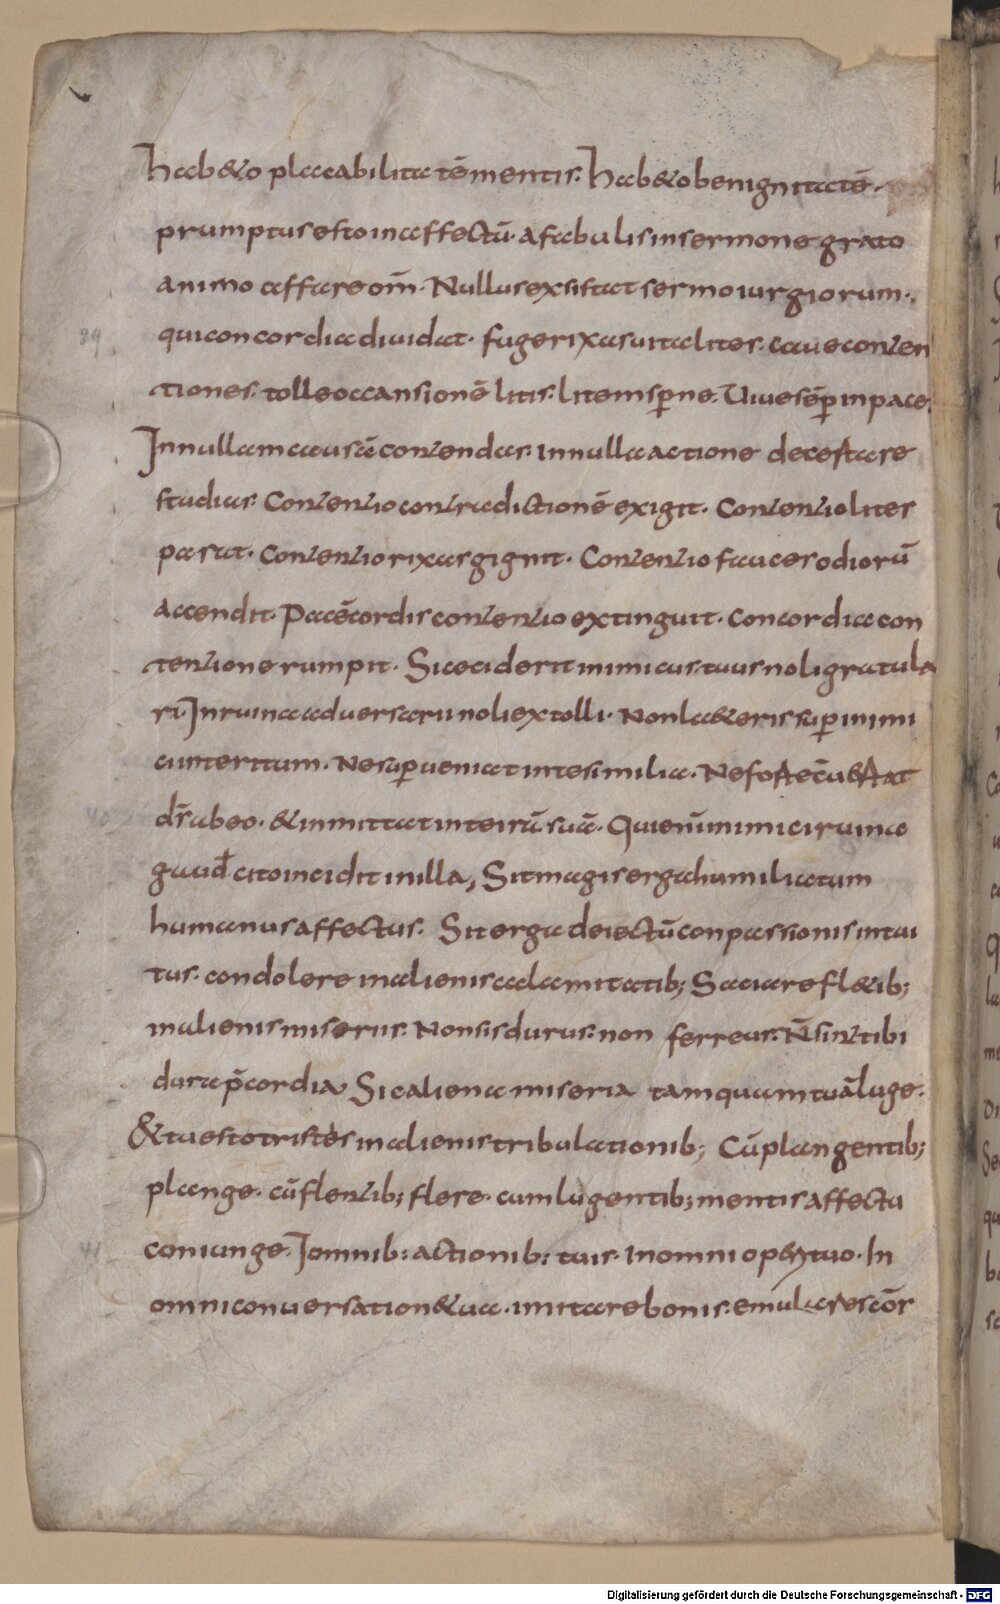 Hab&o placabilitatē mentis. Hab&o benignitatē.
prumptus esto in affectū. Afabulis in sermone grato
animo affare om̄. Nullus exsistat sermo iurgiorum.
qui concordia diuidat. fuge rixas uita lites. caue conten
tiones. tolle occansionē litis. litem sperne. Uiue sēp in pace.
In nullam causā contendas. in nulla actione decestare
studias. Contentio contradictionē exigit. Contentio lites
parat. Contentio rixas gignit. Contentio faces odiorū
accendit. Pacē cordis contentio extinguit. Concordia con
tentione rumpit. Si ceciderit inimicus tuus noli gratula
ri. In ruina aduersarii noli extolli. Non la&eris sup inimi
ci interitum. Ne superueniat in te similia. Ne foste cū bstat
dr̄ ab eo. & inmittat in te irā suā. Qui enī inimici ruina
gaud& cito incidit in illa, Sit magis erga humiliatum
humanus affectus. Sit erga deiectū conpassionis intui
tus. condolere in alienis calamitatib; Saciare fl&ib;
in alienis miseriis. Non sis durus. non ferreus. N̄ sint tibi
dura p̄cordia, Sic aliena miseria tamquam tuā luge.
& tu esto tristes in alienis tribulationib; Cū plangentib;
plange. cū flentib; flere. cum lugentib; mentis affectu
coniunge. I omnib; actionib; tuis. In omni op& tuo. In
omni conuersation& ua. imitare bonis. emulare scōr